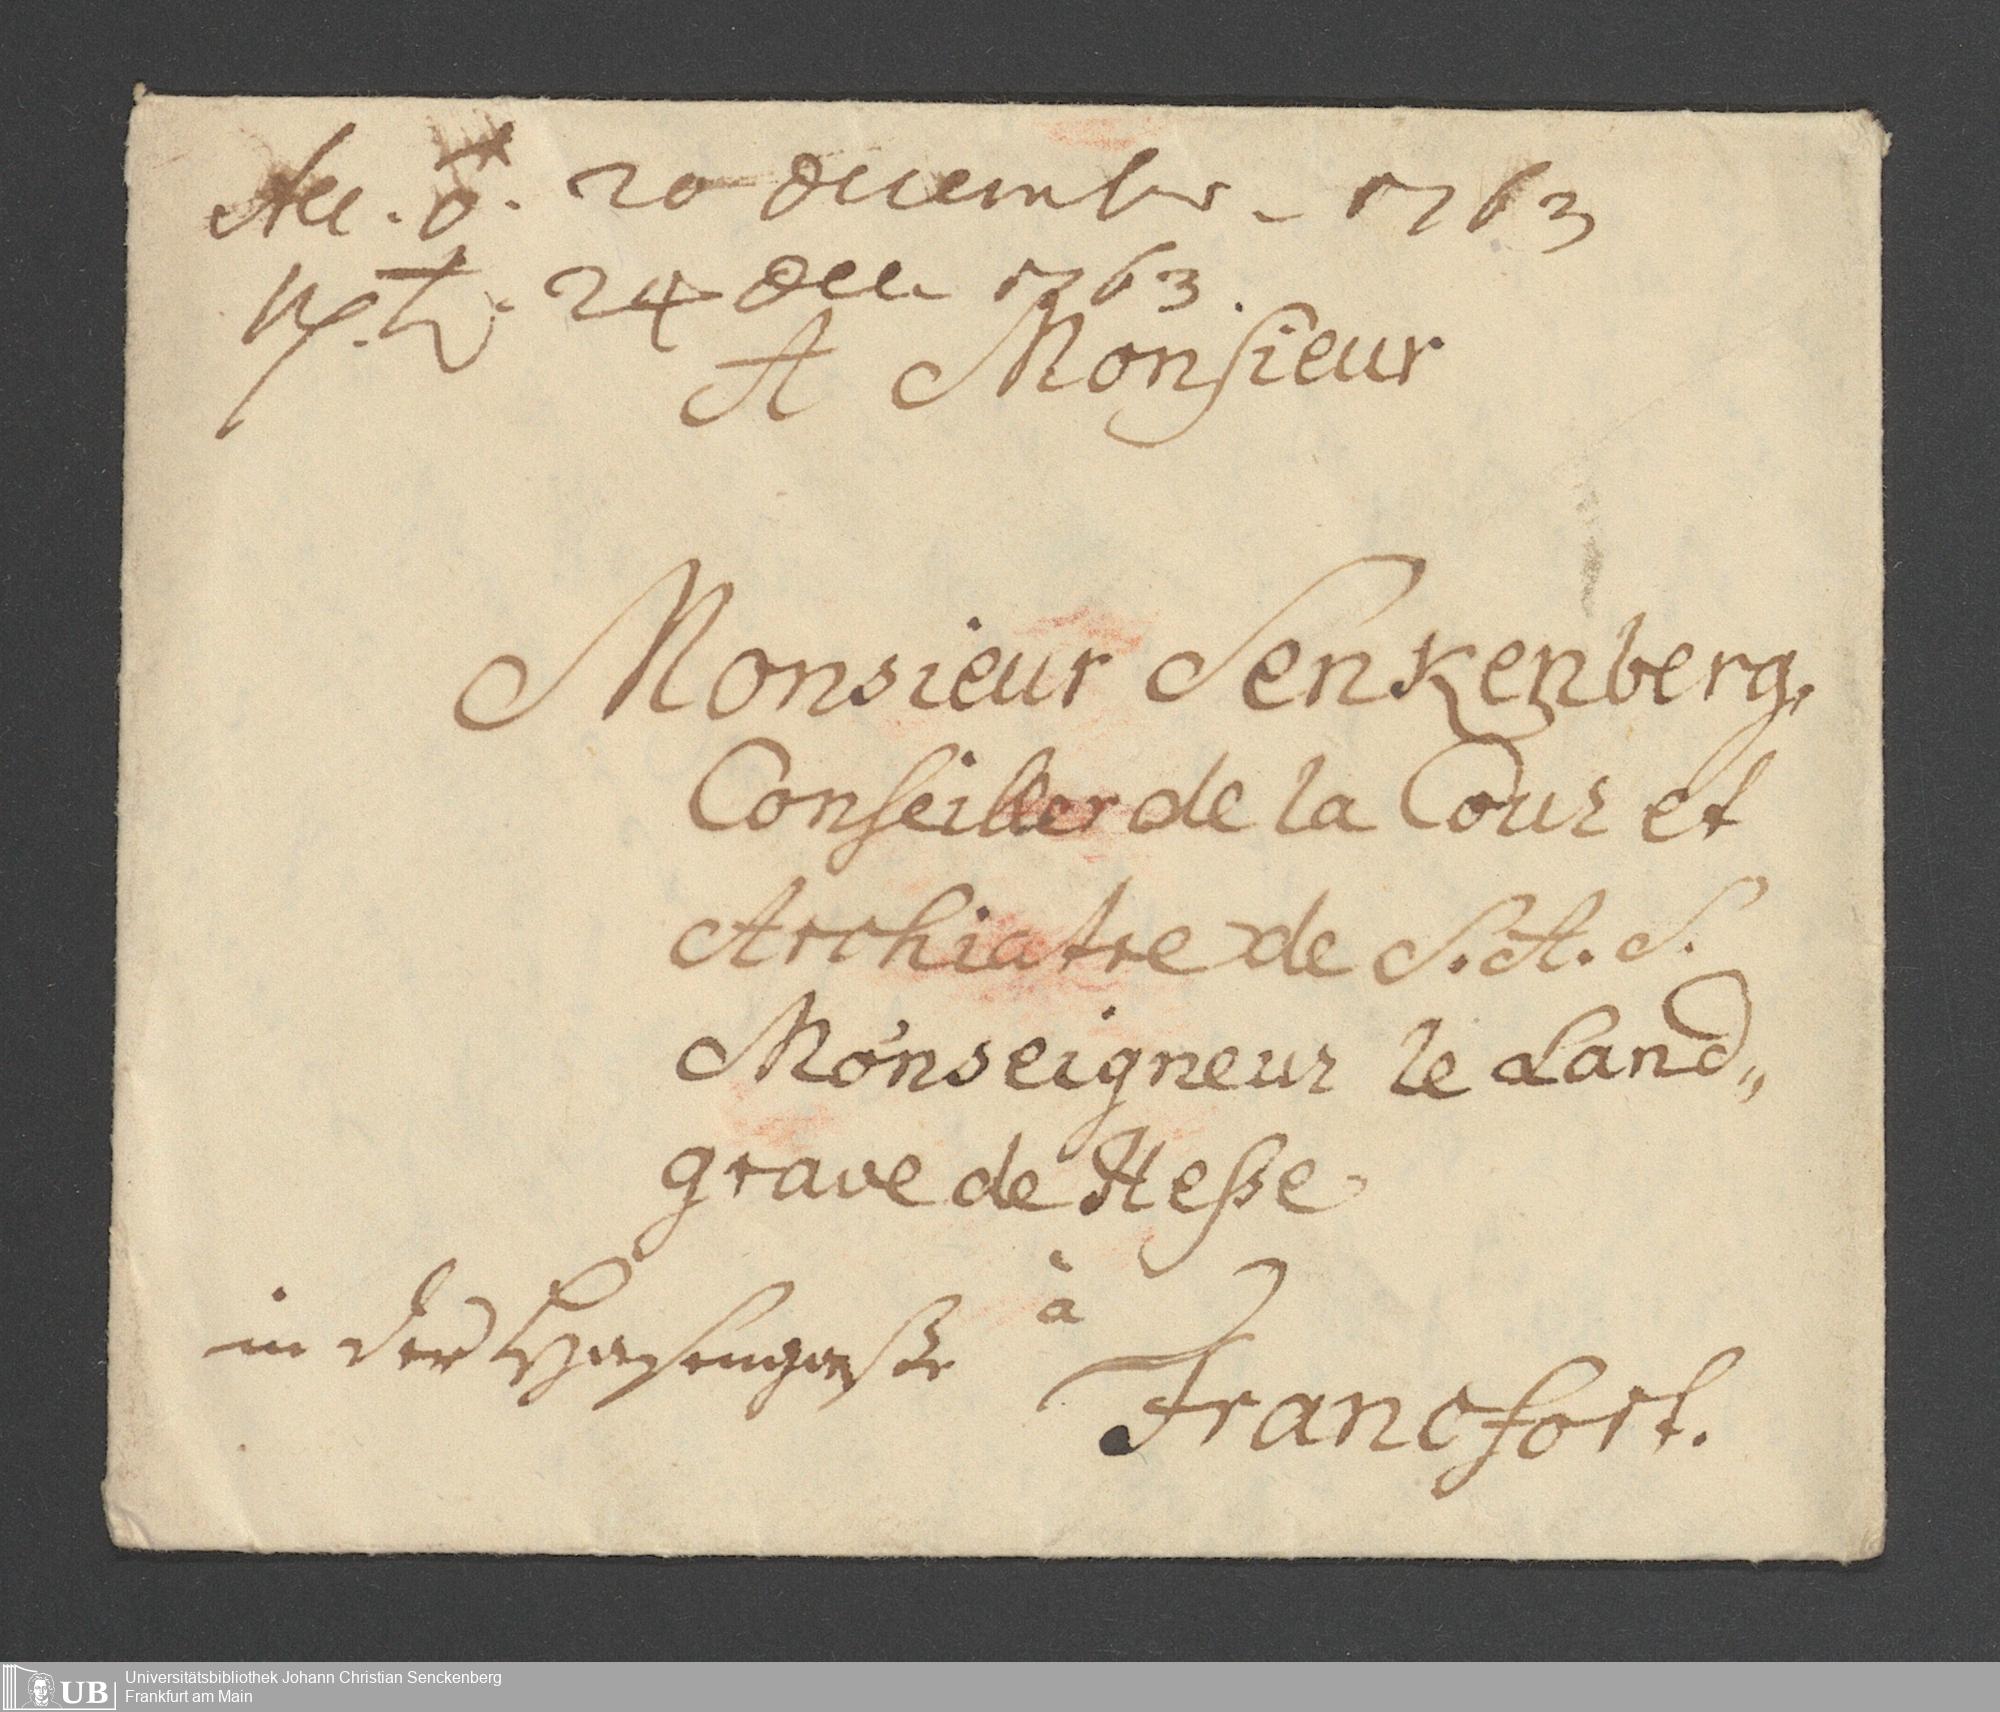 Acc. ♂. 20 december 1763
♄. 24 dec 1763.
A Monsieur
Monsieur Senkenberg,
Conseiller de la Cour et
Archiatre de S. A. S.
Monseigneur le Land„
grave de Hesse
à
in der Hasengaße
Francfort.
UB
Universitätsbibliothek Johann Christian Senckenberg
Frankfurt am Main